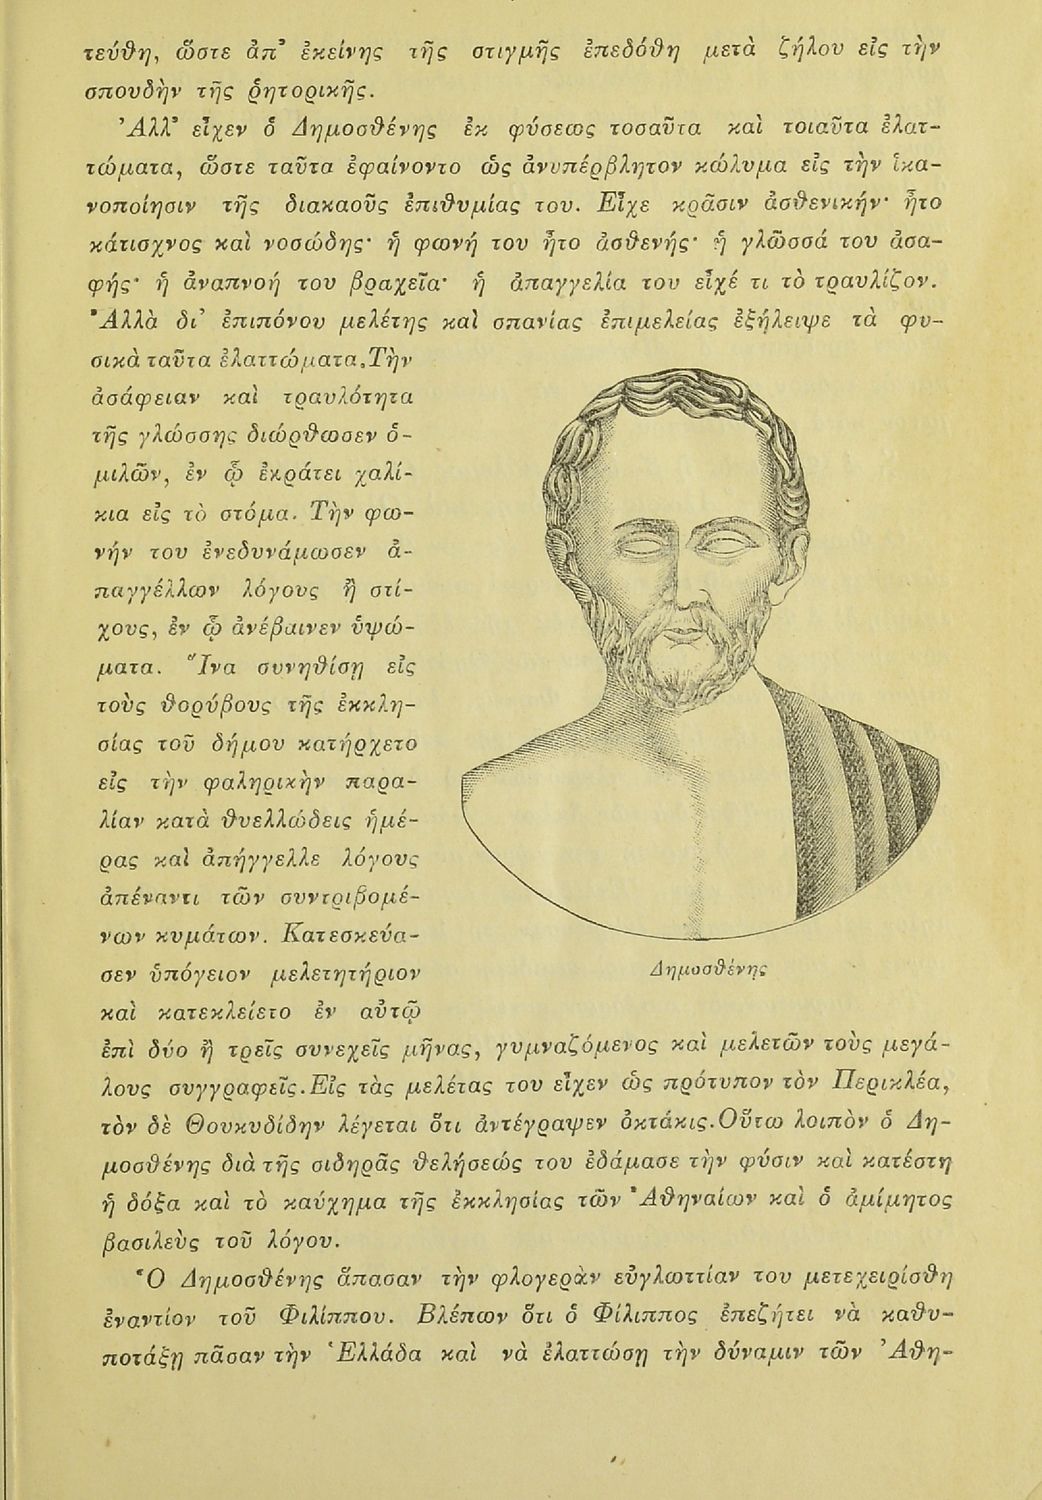 τεύθη, ὥστε ἀπ’ ἐκείνης τῆς στιγμῆς ἐπεδόθη μετὰ ζήλου εἰς τὴν
σπουδὴν τῆς ῥητορικῆς.
Ἀλλ’ εἶχεν ὁ Δημοσθένης ἐκ φύσεως τοσαῦτα καὶ τοιαῦτα ἐλατ-
τώματα, ὥστε ταῦτα ἐφαίνοντο ὡς ἀνυπέρβλητον κώλυμα εἰς τὴν ἱκα-
νοποίησιν τῆς διακαοῦς ἐπιθυμίας του. Εἶχε κρᾶσιν ἀσθενικήν· ἦτο
κάτισχνος καὶ νοσώδης· ἡ φωνή του ἦτο ἀσθενής· ἡ γλῶσσά του ἀσα-
φής· ἡ ἀναπνοή του βραχεῖα· ἡ ἀπαγγελία του εἶχέ τι τὸ τραυλίζον.
Ἀλλὰ δι’ ἐπιπόνου μελέτης καὶ σπανίας ἐπιμελείας ἐξήλειψε τὰ φυ-
σικὰ ταῦτα ἐλαττώματα. Τὴν
ἀσάφειαν καὶ τραυλότητα
τῆς γλώσσης διώρθωσεν ὁ-
μιλῶν, ἐν ᾧ ἐκράτει χαλί-
κια εἰς τὸ στόμα. Τὴν φω-
νήν του ἐνεδυνάμωσεν ἀ-
παγγέλλων λόγους ἢ στί-
χους, ἐν ᾧ ἀνέβαινεν ὑψώ-
ματα. Ἵνα συνηθίσῃ εἰς
τοὺς θορύβους τῆς ἐκκλη-
σίας τοῦ δήμου κατήρχετο
εἰς τὴν φαληρικὴν παρα-
λίαν κατὰ θυελλώδεις ἡμέ-
ρας καὶ ἀπήγγελλε λόγους
ἀπέναντι τῶν συντριβομέ-
νων κυμάτων. Κατεσκεύα-
σεν ὑπόγειον μελετητήριον
καὶ κατεκλείετο ἐν αὐτῷ
Δημοσθένης
ἐπὶ δύο ἢ τρεῖς συνεχεῖς μῆνας, γυμναζόμενος καὶ μελετῶν τοὺς μεγά-
λους συγγραφεῖς. Εἰς τὰς μελέτας του εἶχεν ὡς πρότυπον τὸν Περικλέα,
τὸν δὲ Θουκυδίδην λέγεται ὅτι ἀντέγραψεν ὀκτάκις. Οὕτω λοιπὸν ὁ Δη-
μοσθένης διὰ τῆς σιδηρᾶς θελήσεώς του ἐδάμασε τὴν φύσιν καὶ κατέστη
ἡ δόξα καὶ τὸ καύχημα τῆς ἐκκλησίας τῶν Ἀθηναίων καὶ ὁ ἀμίμητος
βασιλεὺς τοῦ λόγου.
Ὁ Δημοσθένης ἅπασαν τὴν φλογερὰν εὐγλωττίαν του μετεχειρίσθη
ἐναντίον τοῦ Φιλίππου. Βλέπων ὅτι ὁ Φίλιππος ἐπεζήτει νὰ καθυ-
ποτάξῃ πᾶσαν τὴν Ἑλλάδα καὶ νὰ ἐλαττώσῃ τὴν δύναμιν τῶν Ἀθη-